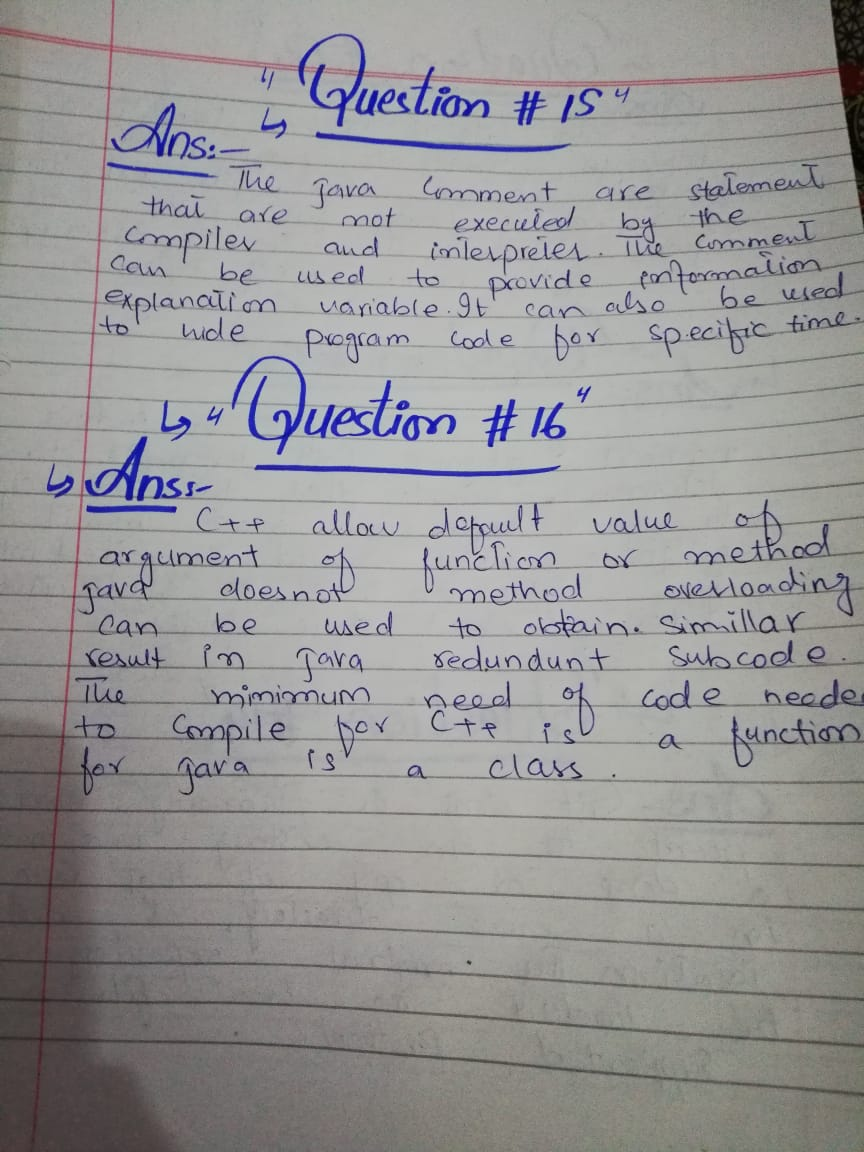 " Question # 15"
Ans:-
The Java Comment are statement
that are not executed by the
compiler and interpreter. The comment
can be used to provide information
explanation variable. It can also be used
to hide program code for specific time.
" Question # 16"
Ans:-
C++ allow default value of
argument of function or method
Java doesnot method overloading
can be used to obtain. Simillar
result in Java redundunt Subcode.
The minimum need of code neede
to Compile for C++ is a function
for Java is a class.